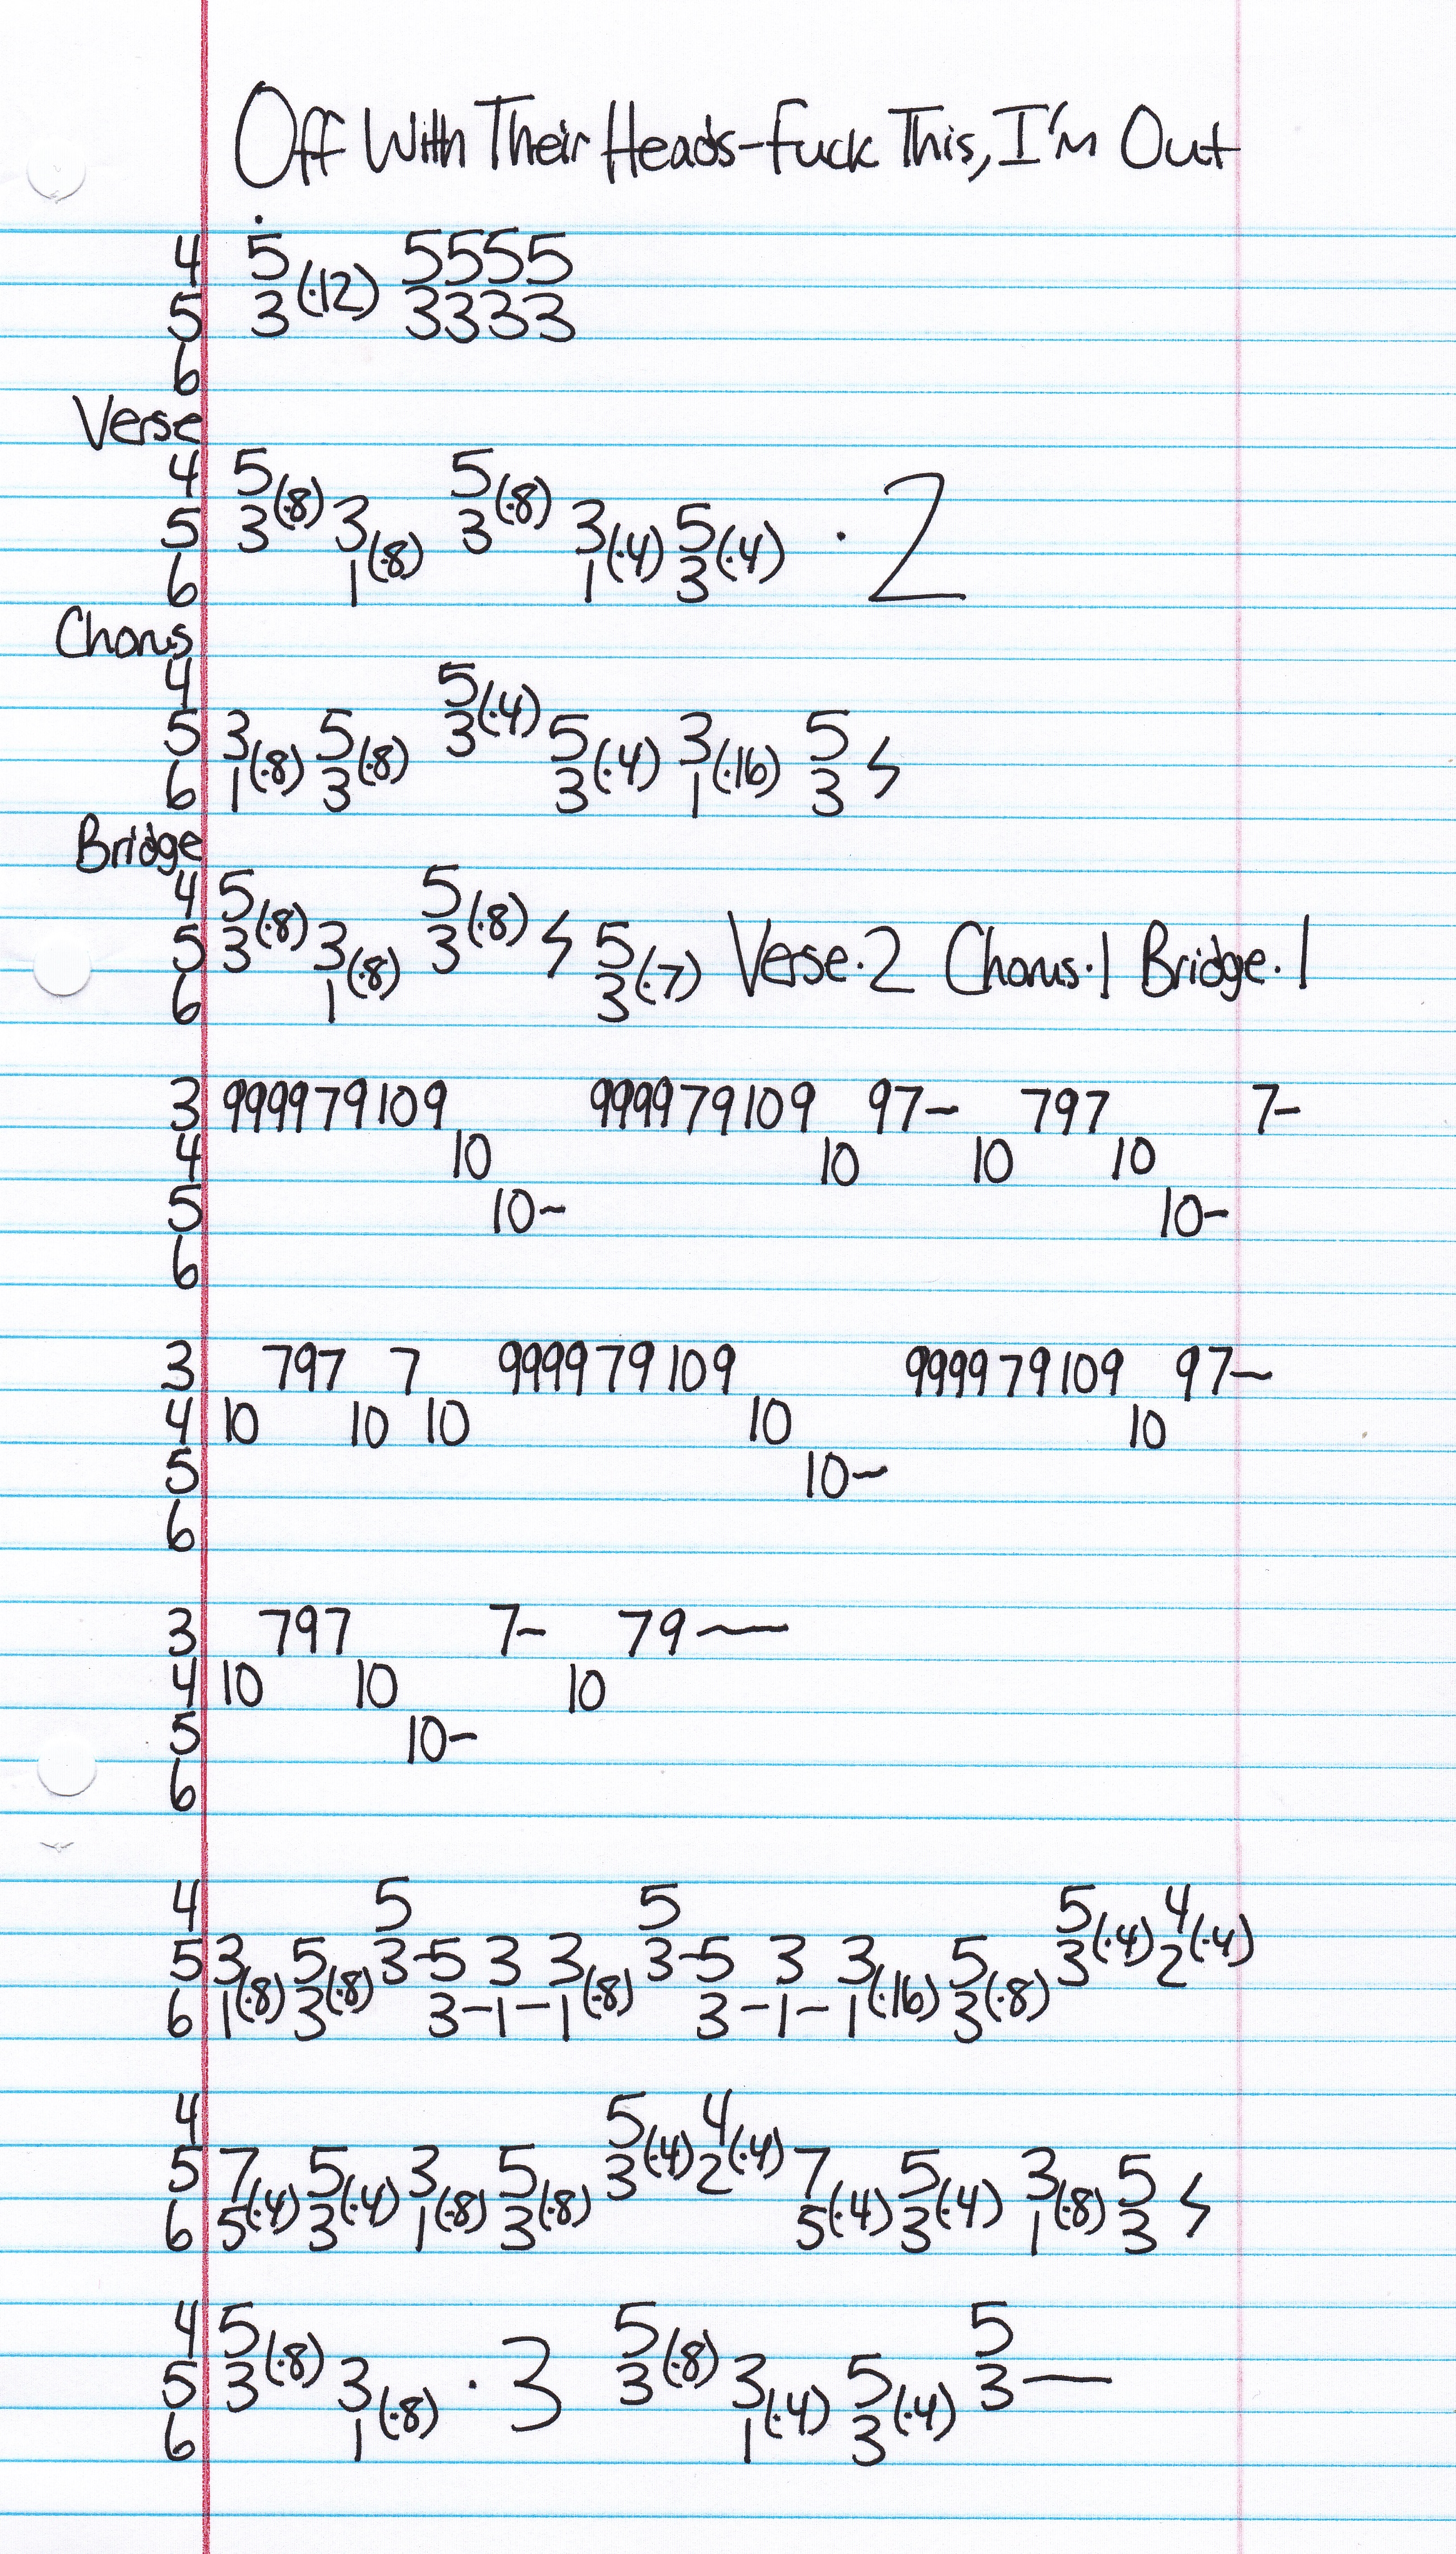 Off With Their Heads-Fuck This, I'm Out
4 5 5555
5 3 (·12) 3333
6
Verse
4 5 5
5 3 (·8) 3 3 (·8) 3 5 · 2
6 1 (·8) 1 (·4) 3 (·4)
Chorus
4 5
5 3 5 3 (·4) 5 3 5
6 1 (·8) 3 (·8) 3 (·4) 1 (·16) 3
Bridge
4 5 5
5 3 (·8) 3 3 (·8) 5 Verse·2 Chorus·1 Bridge·1
6 1 (·8) 3 (·7)
3 999979109 999979109 97- 797 7-
4 10 10 10 10
5 10- 10-
6
3 797 7 999979109 999979109 97-
4 10 10 10 10 10
5 10-
6
3 797 7- 79-
4 10 10 10
5 10-
6
4 5 5 5 4
5 3 5 3-5 3 3 3-5 3 3 5 3 (·4) 2 (·4)
6 1 (·8) 3 (·8) 3-1-1 (·8) 3-1-1 (·16) 3 (·8)
4 5 4
5 7 5 3 5 3 (·4) 2 (·4) 7 5 3 5
6 5 (·4) 3 (·4) 1 (·8) 3 (·8) 5 (·4) 3 (·4) 1 (·8) 3
4 5 5 5
5 3 (·8) 3 · 3 3 (·8) 3 5 3-
6 1 (·8) 1 (·4) 3 (·4)